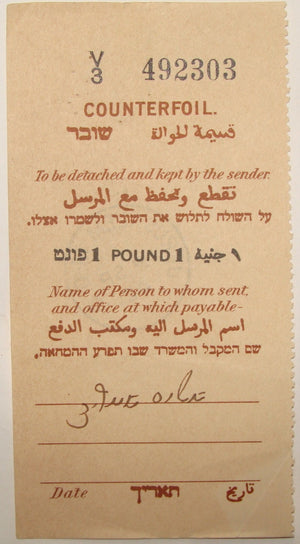 V/3 492303
COUNTERFOIL.
קסימة לحوالة שובר
To be detached and kept by the sender.
تقطع وتحفظ مع المرسل
על השולח לתלוש את השובר ולשמרו אצלו.
פונט 1 POUND 1 جنيه ١
Name of Person to whom sent,
and office at which payable-
اسم المرسل اليه ومكتب الدفع
שם המקבל והמשרד שבו תפרע ההמחאה.
Date תאריך تاريخ